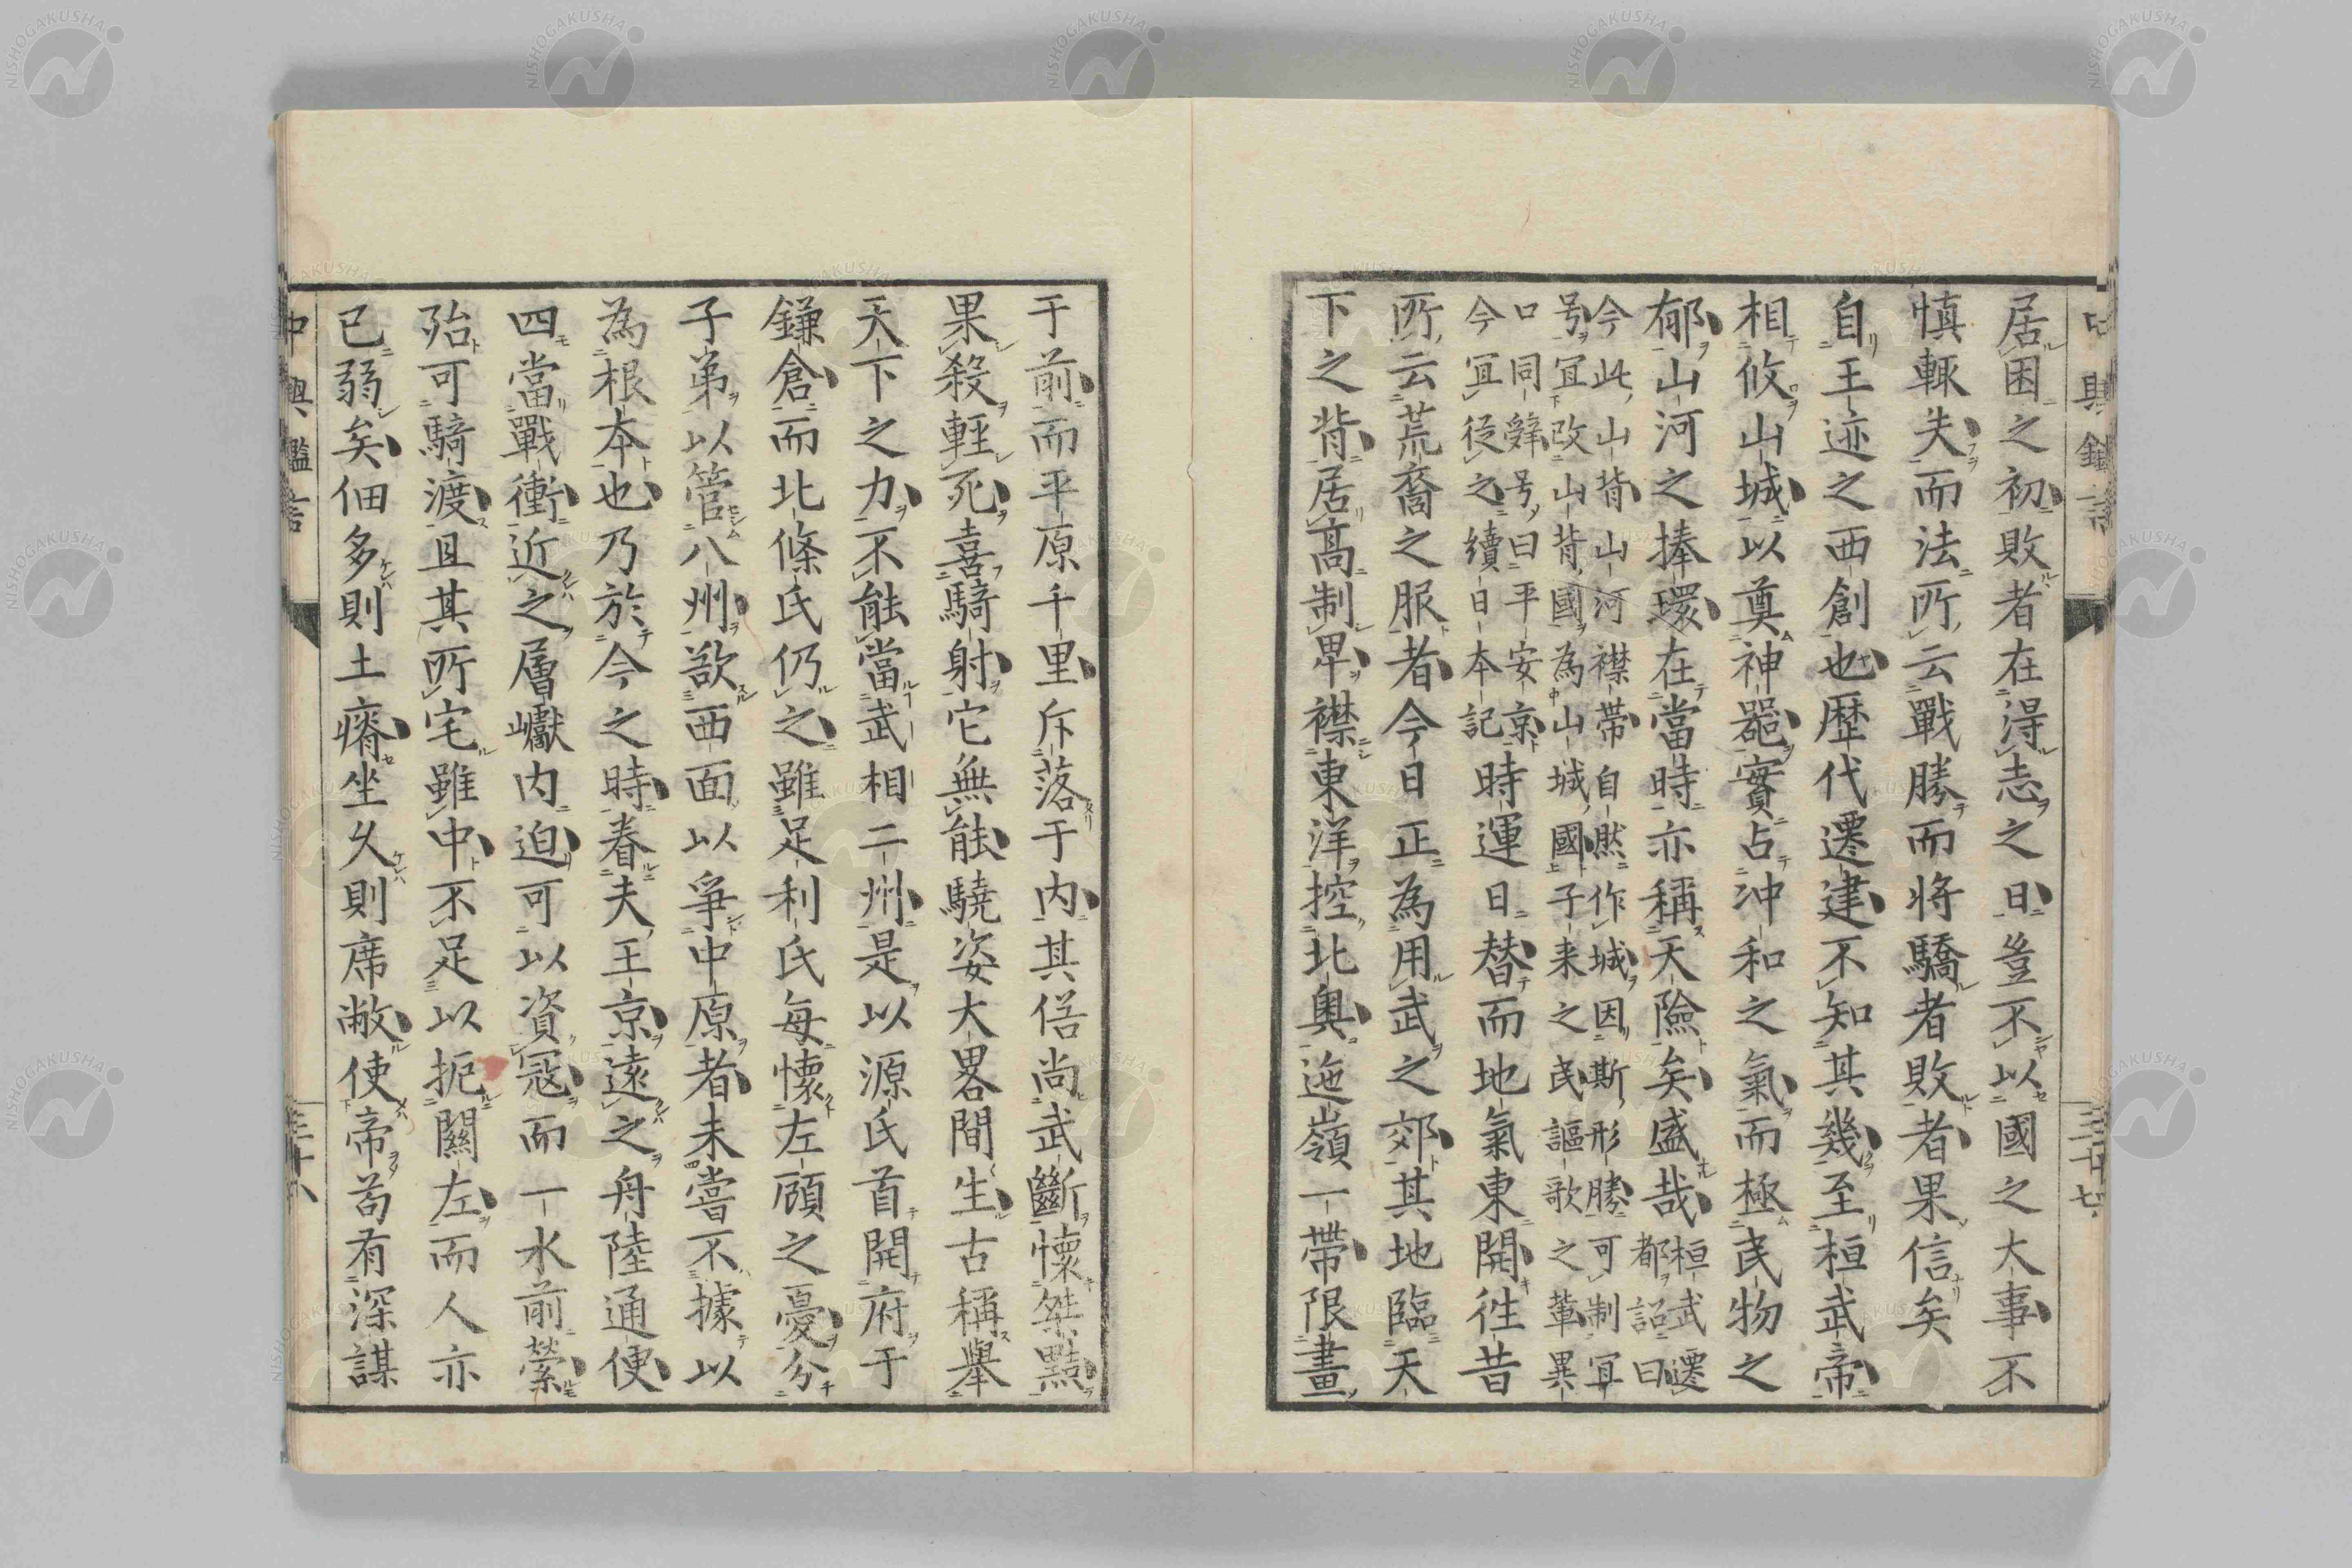 居困之初敗者在淂志之日豈不以國之大事不
慎輒失而法所云戰勝而将驕者敗者果信矣
自王迹之西創也歴代遷建不知其幾至桓武帝
相攸山城以奠神器實占沖和之氣而極民物之
郁山河之捧環在當時亦稱天險矣盛哉桓武遷都詔曰
今此山背山河襟帯自然作城因斯形勝可制冝
号冝改山背國為山城國子来之民謳歌之輩異
口同辤号曰平安京
今冝従之續日本記
時運日替而地氣東開徃昔
所云荒裔之服者今日正為用武之郊其地臨天
下之背居髙制卑襟東洋控北奥迤嶺一帶限畫
于前而平原千里斥落于内其俗尚武斷懐桀黠
果殺輕死喜騎射它無能驍姿大畧間生古稱擧
天下之力不能當武相二州是以源氏首開府于
鎌倉而北條氏仍之雖足利氏每懷左顧之憂分
子弟以管八州欲西面以爭中原者未嘗不據以
為根本也乃於今之時眷夫王京遠之舟陸通便
四當戰衝近之層巘内迫可以資冦而一水前縈
殆可騎渡且其所宅雖中不足以扼關左而人亦
已弱矣佃多則土瘠坐久則席敝使帝茍有深謀
中興鑑言
三十七
中興鑑言
三十八
NISHOGAKUSHA